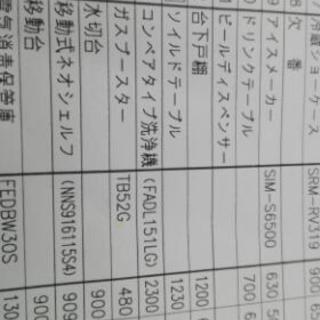 冷蔵ショーケース SRM-RV319 900
8 欠番
9 アイスメーカー SIM-S6500 630
ドリンクテーブル 700
ビールディスペンサー
台下戸棚 1200
ソイルドテーブル 1230
コンベアタイプ洗浄機 (FADL151LG) 2300
ガスブースター TB52G 480
水切台 900
移動式ネオシェルフ (NNS916115S4) 909
移動台 900
電気消毒保管庫 FEDBW30S 130